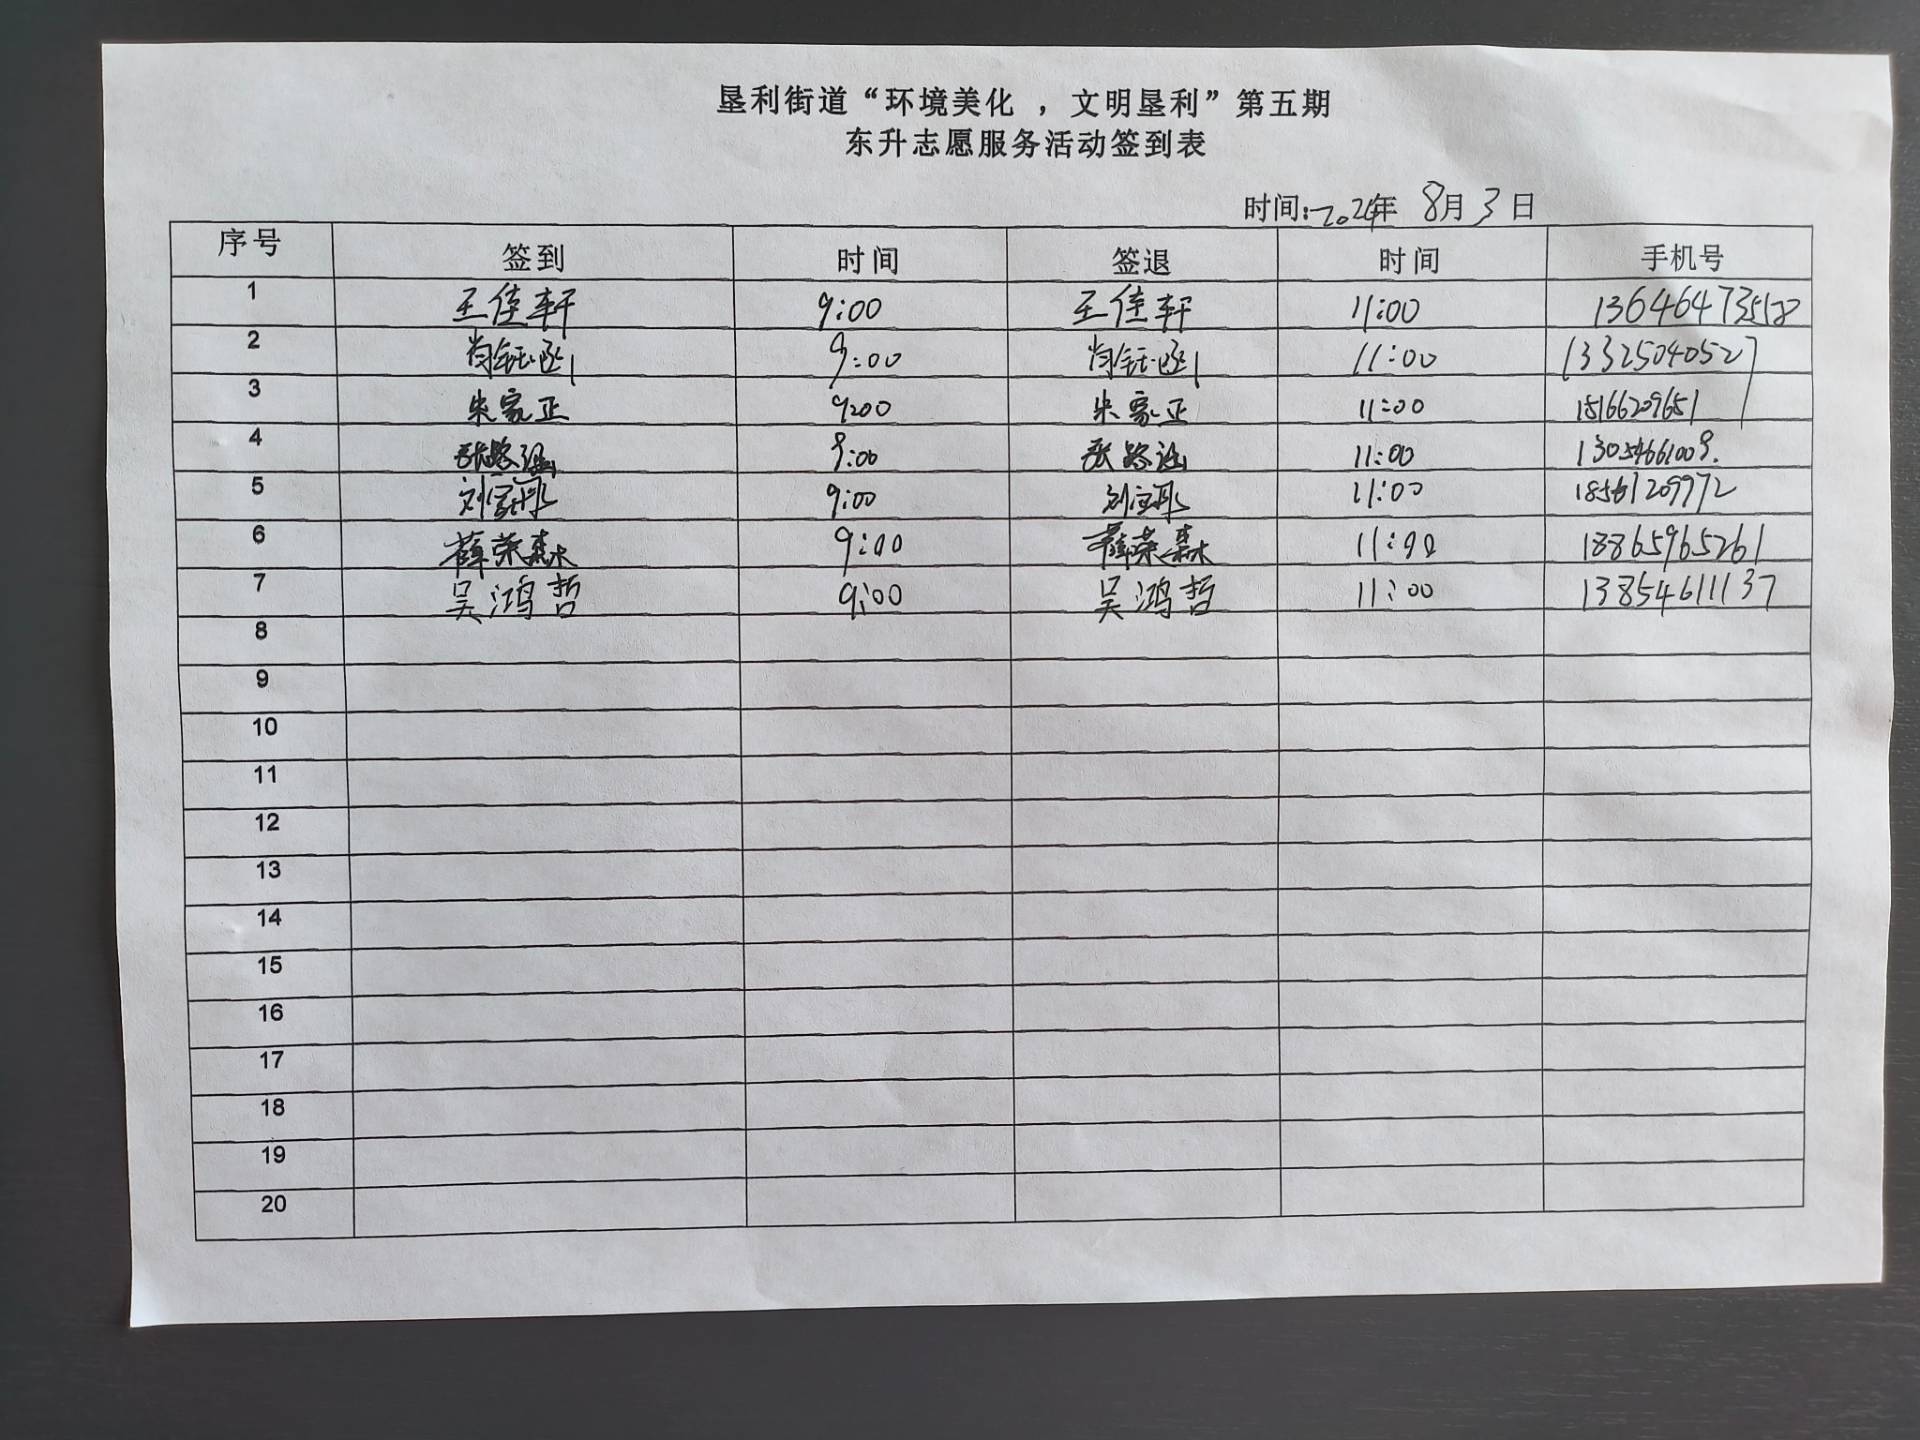 垦利街道“环境美化，文明垦利”第五期
东升志愿服务活动签到表
时间:2024年 8月3日
序号 签到 时间 签退 时间 手机号
1 王佳轩 9:00 王佳轩 11:00
2 肖钰函 9:00 肖钰函 11:00 13325040527
3 朱家正 9:00 朱家正 11:00 15166209651
4 张路涵 9:00 张路涵 11:00 13054661009.
5 9:00 11:00 18561209972
6 薛荣森 9:00 薛荣森 11:00 18865965261
7 吴鸿哲 9:00 吴鸿哲 11:00 13854611137
8
9
10
11
12
13
14
15
16
17
18
19
20